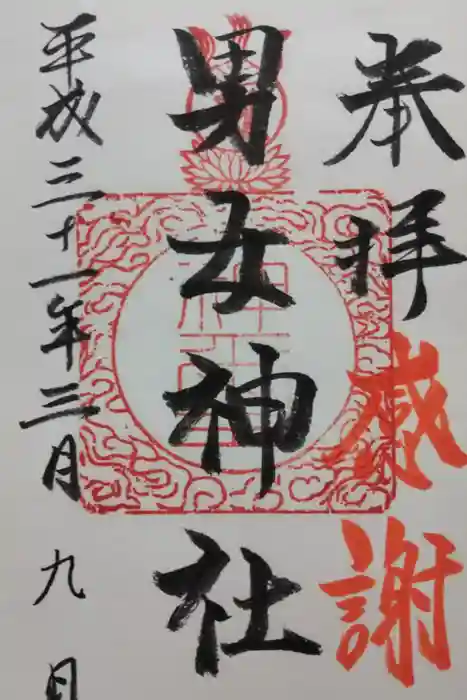 奉拝
感謝
男女神社
平成三十一年三月九日